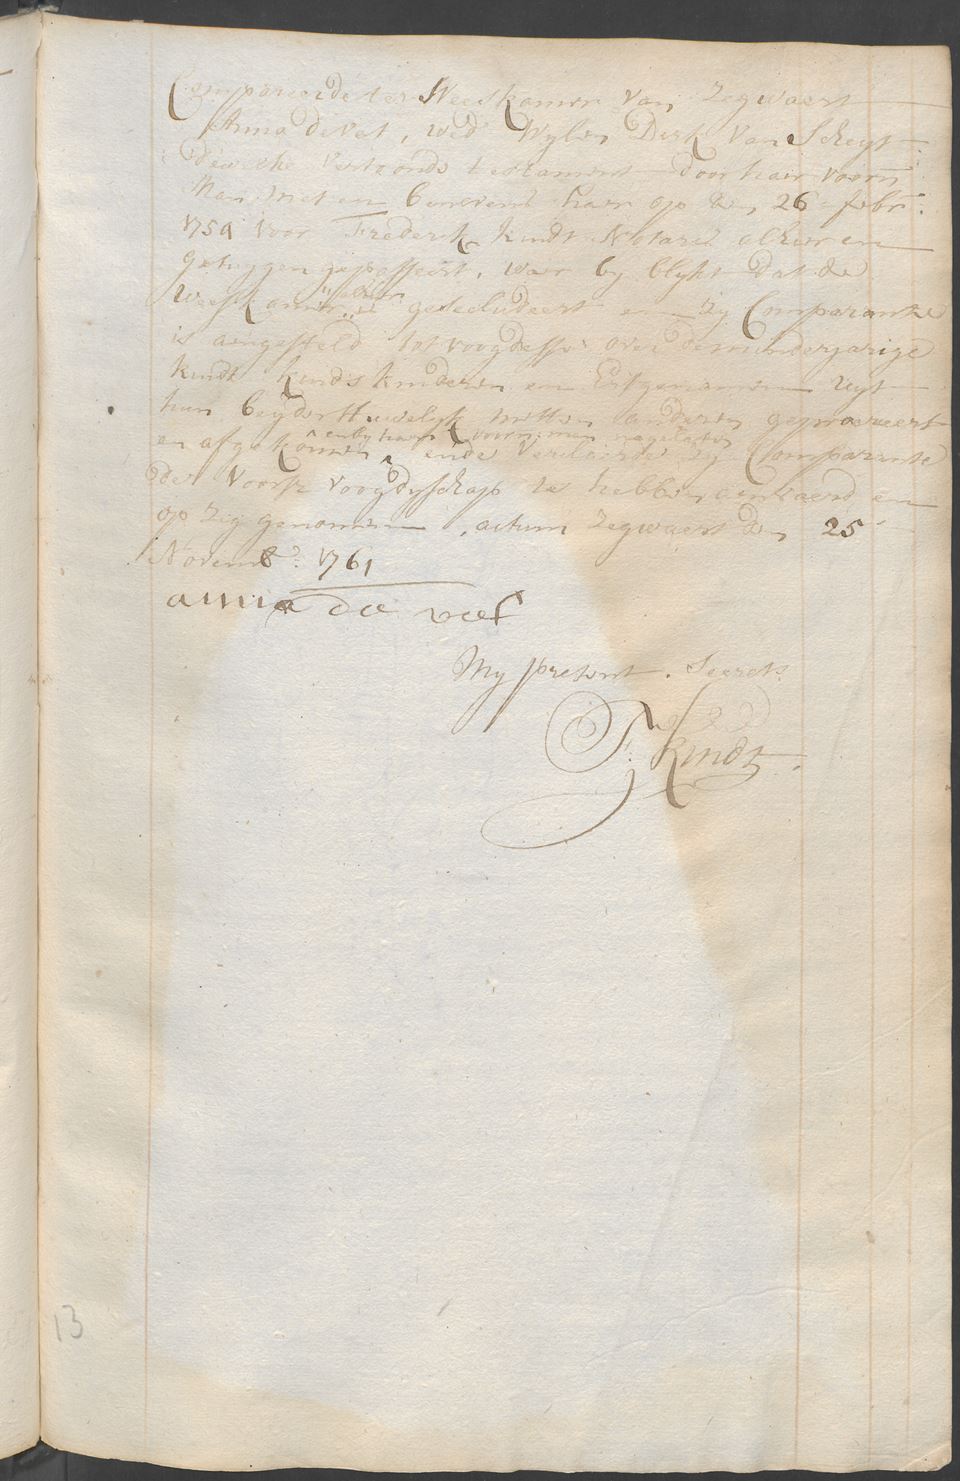 Compareerde ter Weeskamer van Zegwaert
Anna de Vet, wedᵉ Wylen Dirk van Scheyt
dewelke vertoonde testament door haer voorn
Man met en benevens haer op den 26 febr:
1759 voor Frederik Kindt Notars alhier en
getuygen gepasseert, waer by blykt dat de
Weeskamer is gesecludeert en zy Comparante
is aengesteld tot voogdesse over de minderjarige
kindt kindskinderen en Erfgenamen uyt
hun beyder Huwelyk met den anderen geprocreert
en by haer voorn: man nagelaten
en afgekomen, ende verklaerde zy Comparante
de voorsz voogdyschap te hebben aenvaerd en
op zig genomen, actum Zegwaert den 25
Novemb: 1761
anna de vet
My present. Secrets
F: Kindt.
13